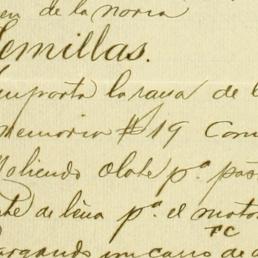 en de la noria
Semillas.
importa la raya de l
memoria #19 Com
Moliendo Olote pª pas
te de léna pª el moto
FC
argando un carro de